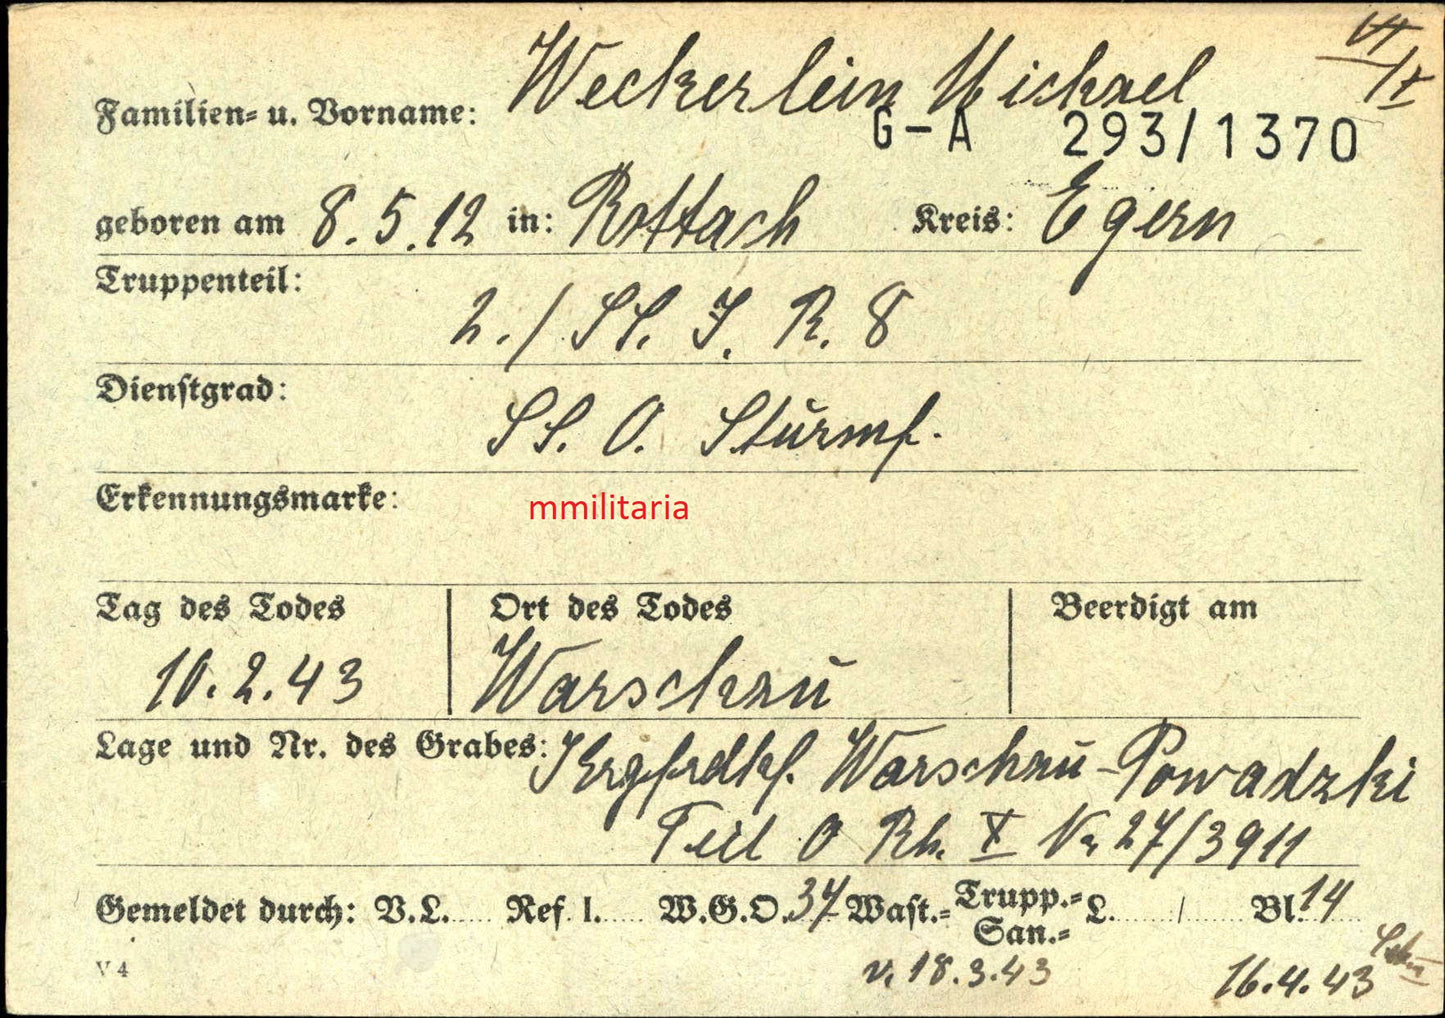 VI
Familien= u. Vorname: Weckerlein Michael
IX
G-A 293/1370
geboren am 8.5.12 in: Rottach Kreis: Egern
Truppenteil:
2./SS. J. R. 8
Dienstgrad:
SS. O. Sturmf.
Erkennungsmarke:
mmilitaria
Tag des Todes Ort des Todes Beerdigt am
10.2.43 Warschau
Lage und Nr. des Grabes: Krgfrdhf. Warschau-Powadzki
Teil O Rh. X Nr 27/3911
Gemeldet durch: V.L. Ref. I. W.G.O. 34 Wast.= Trupp.= San.= L. / Bl. 14
V 4
v. 18.3.43 16.4.43